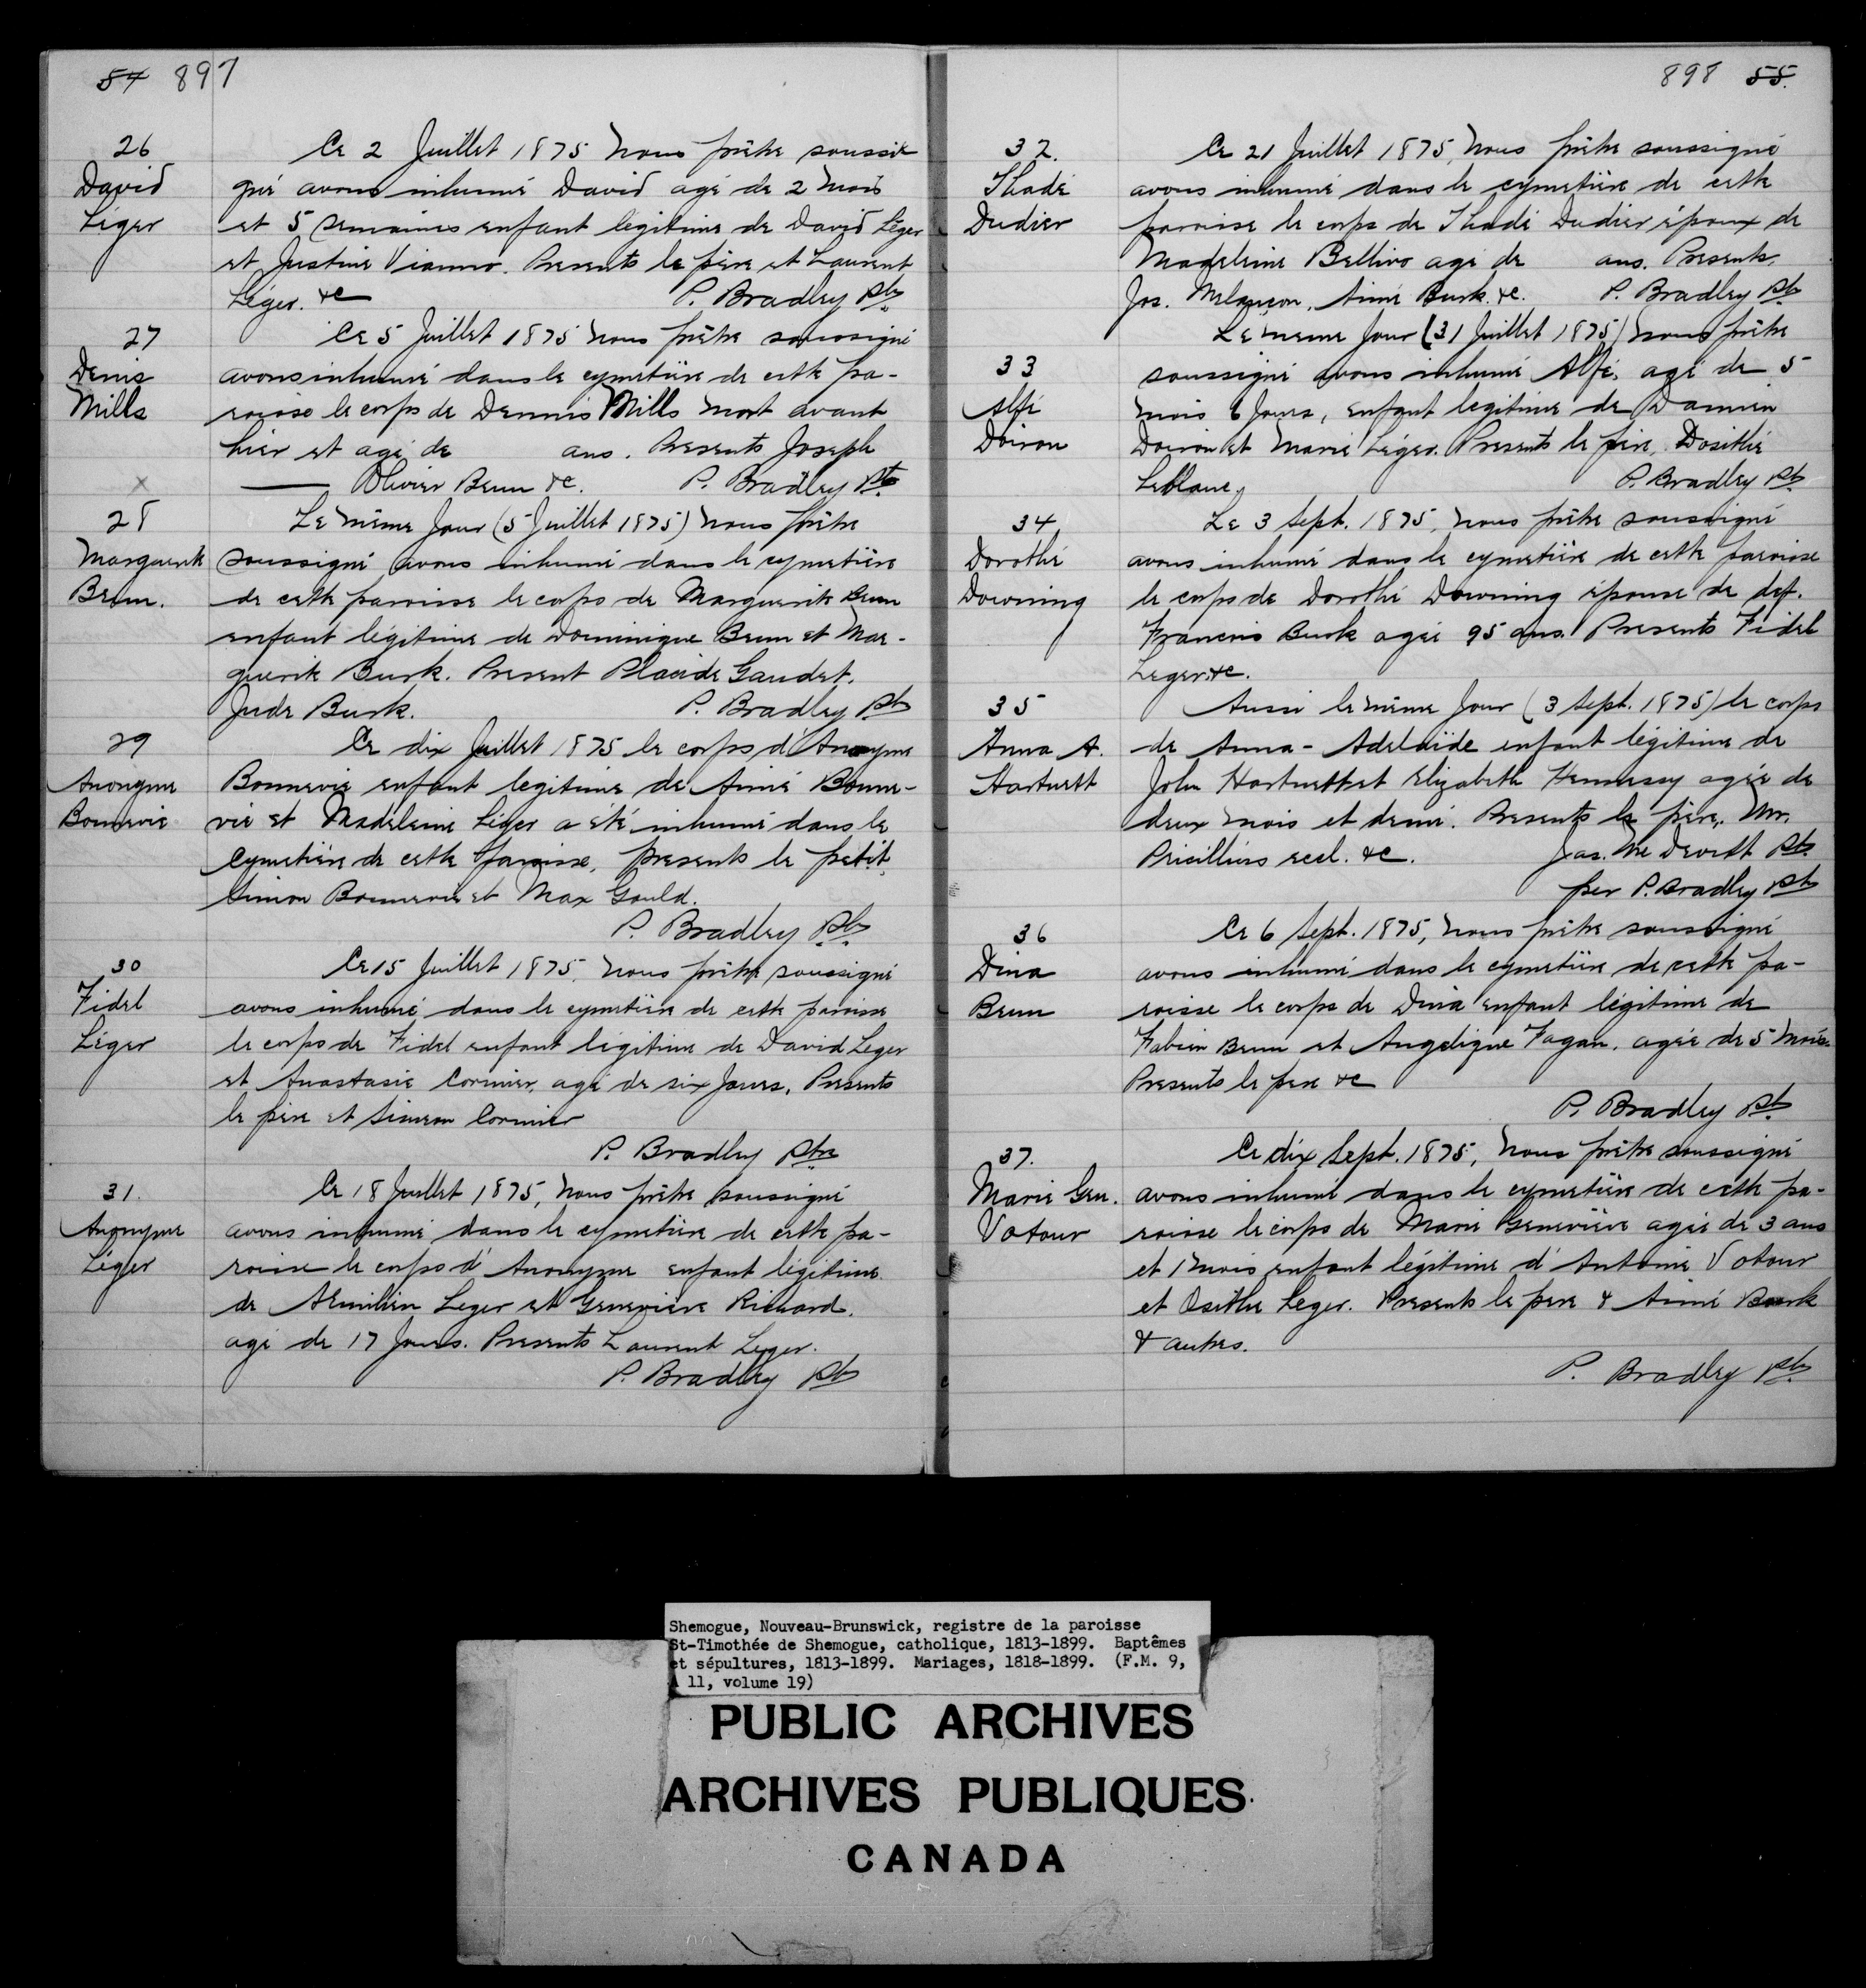 54 897
26
David
Léger
Ce 2 Juillet 1875 nous prêtre soussi
gné avons inhumé David agé de 2 mois
et 5 semaines enfant légitime de David Léger
et Justine Vianno. Presents le père et Laurent
Léger. &c P. Bradley Ptr
27
Denis
Mills
Ce 5 Juillet 1875 nous prêtre soussigné
avons inhumé dans le cymetière de cette pa-
roisse le corps de Dennis Mills mort avant
hier et agé de ans. Presents Joseph
—— Olivier Brun &c. P. Bradley Ptr
x
28
Marguerite
Brun.
Le même Jour (5 Juillet 1875) nous prêtre
soussigné avons inhumé dans le cymetière
de cette paroisse le corps de Marguerite Brun
enfant légitime de Dominique Brun et Mar-
guerite Burk. Present Placide Gaudet,
Jude Burk. P. Bradley Ptr
29
Anonyme
Bonnevie
Ce dix Juillet 1875 le corps d'Anonyme
Bonnevie enfant legitime de Aimé Bonne-
vie et Madeleine Léger a été inhumé dans le
Cymetière de cette paroisse, presents le petit
Simon Bonnevie et Max Gould.
P. Bradley Ptr
30
Fidel
Léger
Ce 15 Juillet 1875, nous prêtre soussigné
avons inhumé dans le cymetière de cette paroisse
le corps de Fidel enfant légitime de David Leger
et Anastasie Cormier, agé de six Jours. Presents
le père et Simeon Cormier
P. Bradley Ptre
31.
Anonyme
Léger
Ce 18 Juillet 1875, nous prêtre soussigné
avons inhumé dans le cymetière de cette pa-
roisse le corps d'Anonyme enfant légitime
de Leger et Geneviève Richard.
agé de 17 Jours. Presents Laurent Leger.
P. Bradley Ptr
898 55.
32.
Thadé
Dudier
Ce 21 Juillet 1875, nous prêtre soussigné
avons inhumé dans le cymetière de cette
paroisse le corps de Thadé Dudier époux de
Madeleine Bellivo agé de ans. Presents,
Jos. Melançon, Aimé Burk. &c. P. Bradley Ptr
33
Alfé
Doiron
Le meme Jour (31 Juillet 1875) nous prêtre
soussigné avons inhumé Alfé, agé de 5
mois 6 Jours, enfant legitime de Damien
Doiron et Marie Léger. Presents le père, Dosithé
Leblanc, P. Bradley Ptr
34
Dorothé
Downing
Le 3 Sept. 1875, nous prêtre soussigné
avons inhumé dans le cymetière de cette paroisse
le corps de Dorothé Downing épouse de def.
Francois Burk agée 95 ans. Presents Fidel
Leger. &c.
35
Anna A.
Hartnett
Aussi le même Jour (3 Sept. 1875) le corps
de Anna-Adelaïde enfant légitime de
John Hartnett et Elizabeth Hennessy agée de
deux mois et demi. Presents le père, Mr.
eccl. &c. Jas. Mc Devitt Ptr
per P. Bradley Ptr
36
Dina
Brun
Ce 6 Sept. 1875, nous prêtre soussigné
avons inhumé dans le cymetière de cette pa-
roisse le corps de Dina enfant légitime de
Fabien Brun et Angelique Fagan, agée de 5 Mois.
Presents le pere &c
P. Bradley Ptr
37.
Marie Gen.
Votour
Ce dix Sept. 1875, nous prêtre soussigné
avons inhumé dans le cymetière de cette pa-
roisse le corps de Marie Geneviève agée de 3 ans
et 1 mois enfant légitime d'Antoine Votour
et Osithe Leger. Presents le pere & Aimé Bourk
& autres.
P. Bradley Ptr
Shemogue, Nouveau-Brunswick, registre de la paroisse
St-Timothée de Shemogue, catholique, 1813-1899. Baptêmes
et sépultures, 1813-1899. Mariages, 1818-1899. (F.M. 9,
A 11, volume 19)
PUBLIC ARCHIVES
ARCHIVES PUBLIQUES
CANADA